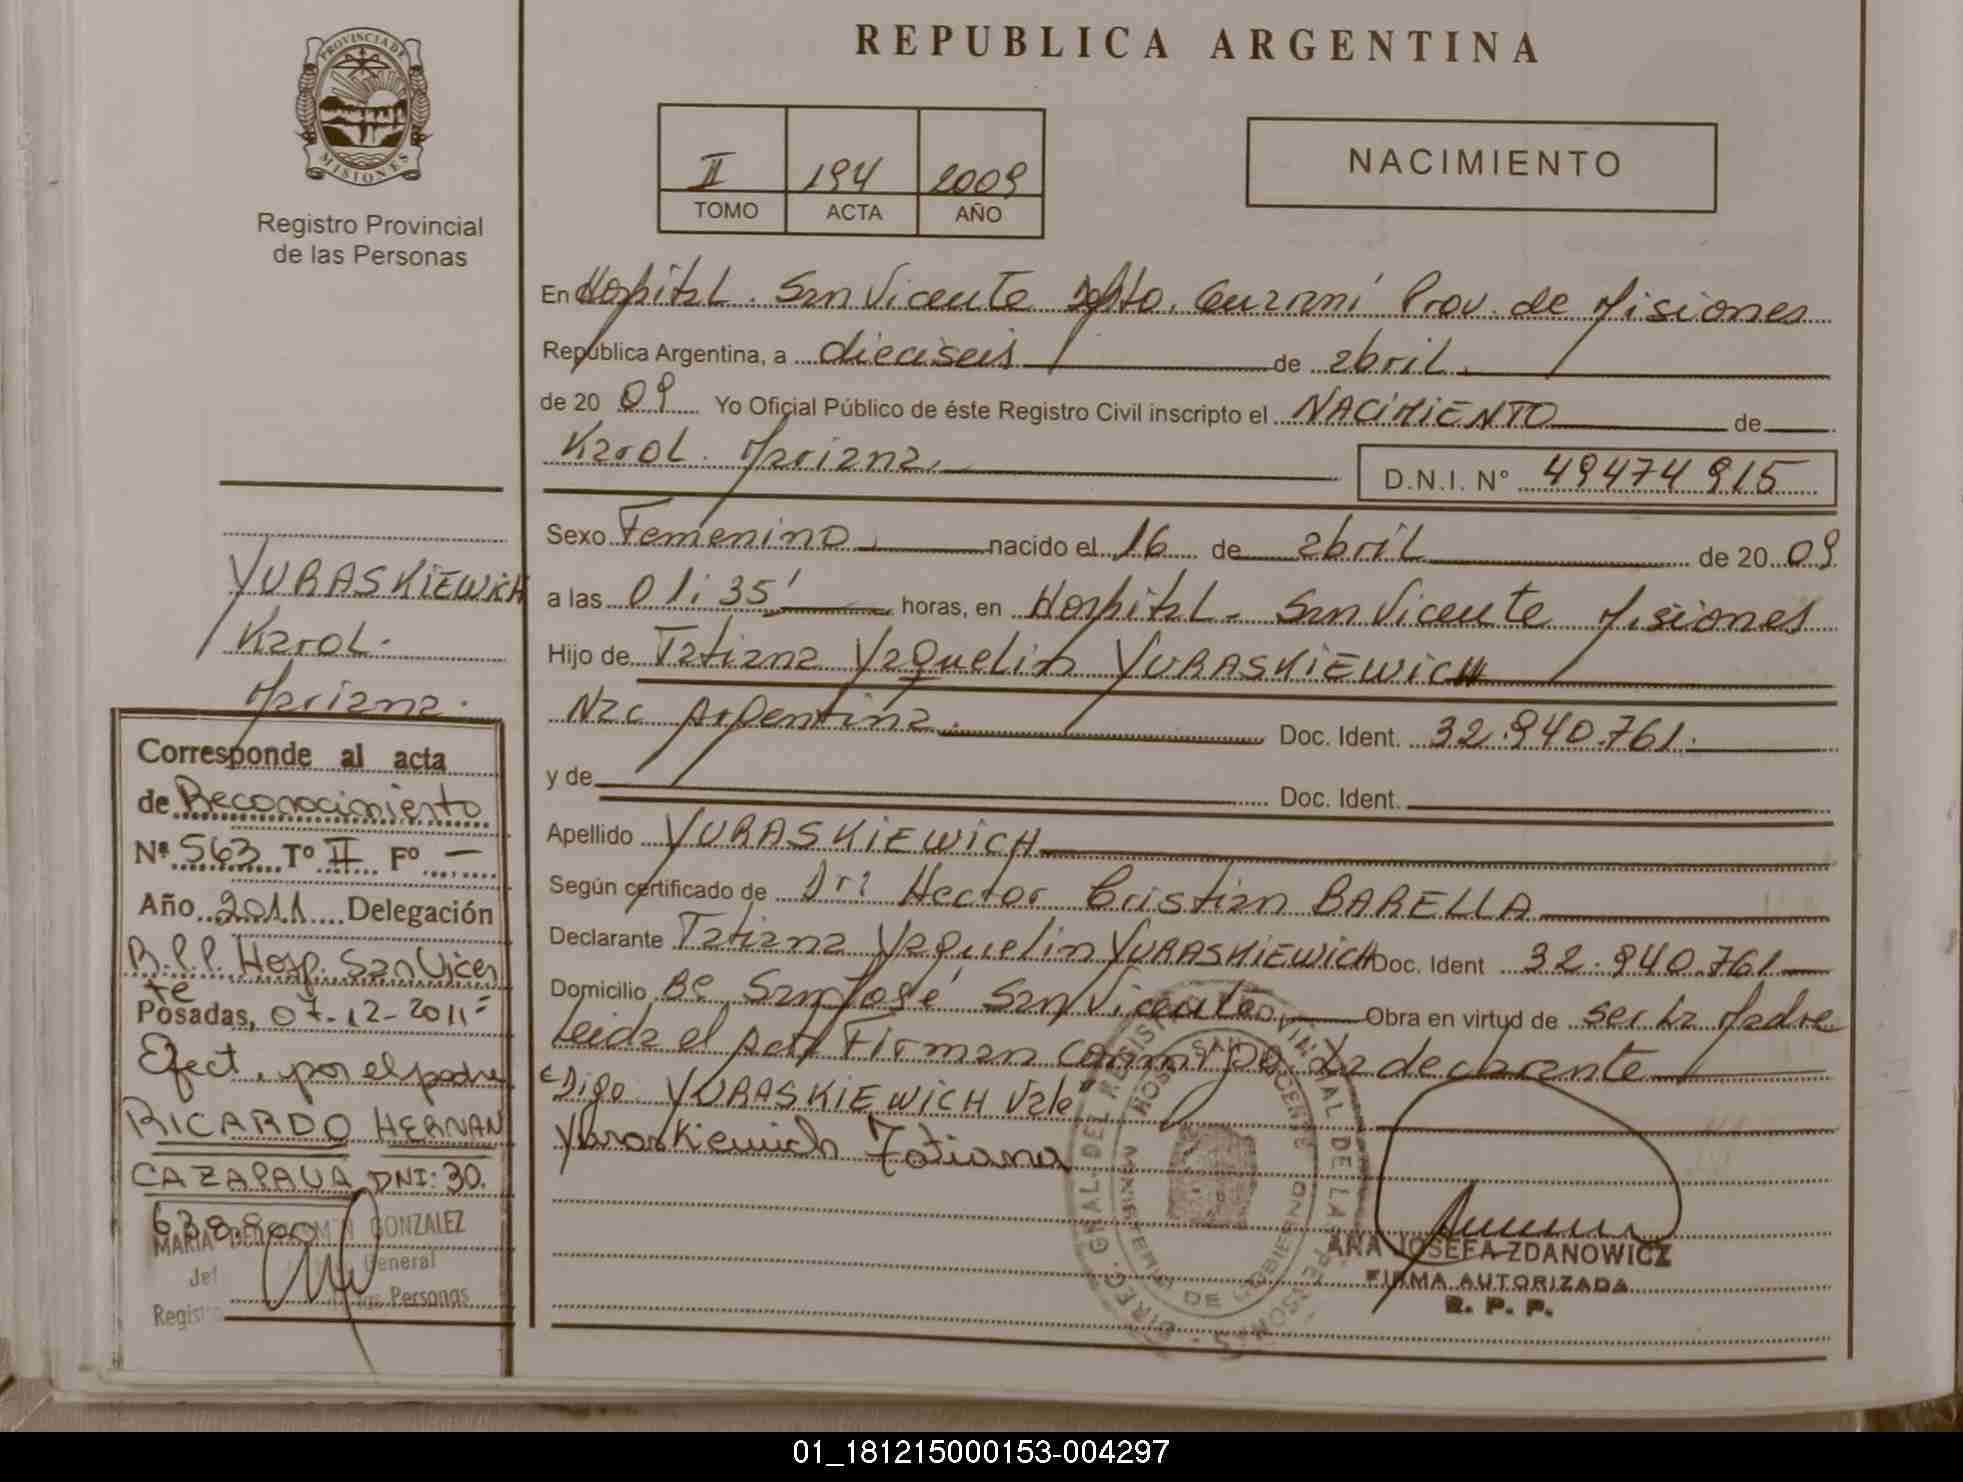 PROVINCIA DE
MISIONES
Registro Provincial
de las Personas
REPUBLICA ARGENTINA
II 194 2009
TOMO ACTA AÑO
NACIMIENTO
En Hospital. San Vicente Dpto. Guaraní Prov. de Misiones
República Argentina, a dieciseis de abril
de 20 09 Yo Oficial Público de éste Registro Civil inscripto el NACIMIENTO de
Karol. Mariana.
D.N.I. Nº 49474915
Sexo Femenino nacido el 16 de abril de 20 09
a las 01:35' horas, en Hospital - San Vicente Misiones
Hijo de Tatiana Yaquelin YURASKIEWICH
Nac Argentina. Doc. Ident. 32.940.761.
y de Doc. Ident.
Apellido YURASKIEWICH
Según certificado de Dr: Hector Cristian BARELLA
Declarante Tatiana Yaquelin YURASKIEWICH Doc. Ident 32.940.761
Domicilio Bº San José San Vicente Obra en virtud de ser la Madre
Leida el Acta Firman conmigo. La declarante
Digo YURASKIEWICH Vale
Yuraskiewich Tatiana
ANA JOSEFA ZDANOWICZ
FIRMA AUTORIZADA
R. P. P.
YURASKIEWICH
Karol.
Mariana.
Corresponde al acta
de Reconocimiento
Nº 563 Tº II Fº —
Año 2011 Delegación
R.P.P. Hosp. San Vicen
te
Posadas, 07-12-2011=
Efect. por el padre
RICARDO HERNAN
CAZAPAUA DNI: 30.
638.800
MARIA DEL GONZALEZ
Jef General
Regis las Personas
01_181215000153-004297